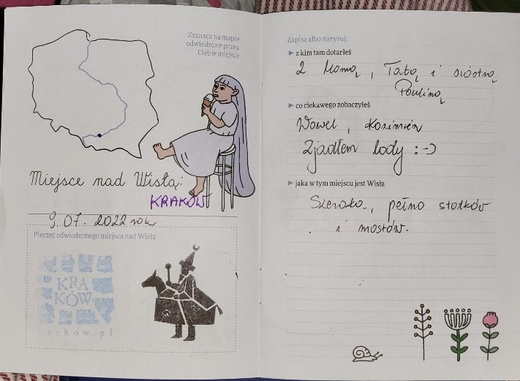 Zaznacz na mapie
odwiedzone przez
Ciebie miejsce
Miejsce nad Wisłą:
KRAKÓW
9.07.2022 rok
Pieczęć odwiedzonego miejsca nad Wisłą
KRA
KÓW
Zapisz albo narysuj:
z kim tam dotarłeś
Z Mamą, Tatą i siostrą
Pauliną
co ciekawego zobaczyłeś
Wawel, Kazimierz
Zjadłem lody :-)
jaka w tym miejscu jest Wisła
Szeroka, pełno statków
i mostów.